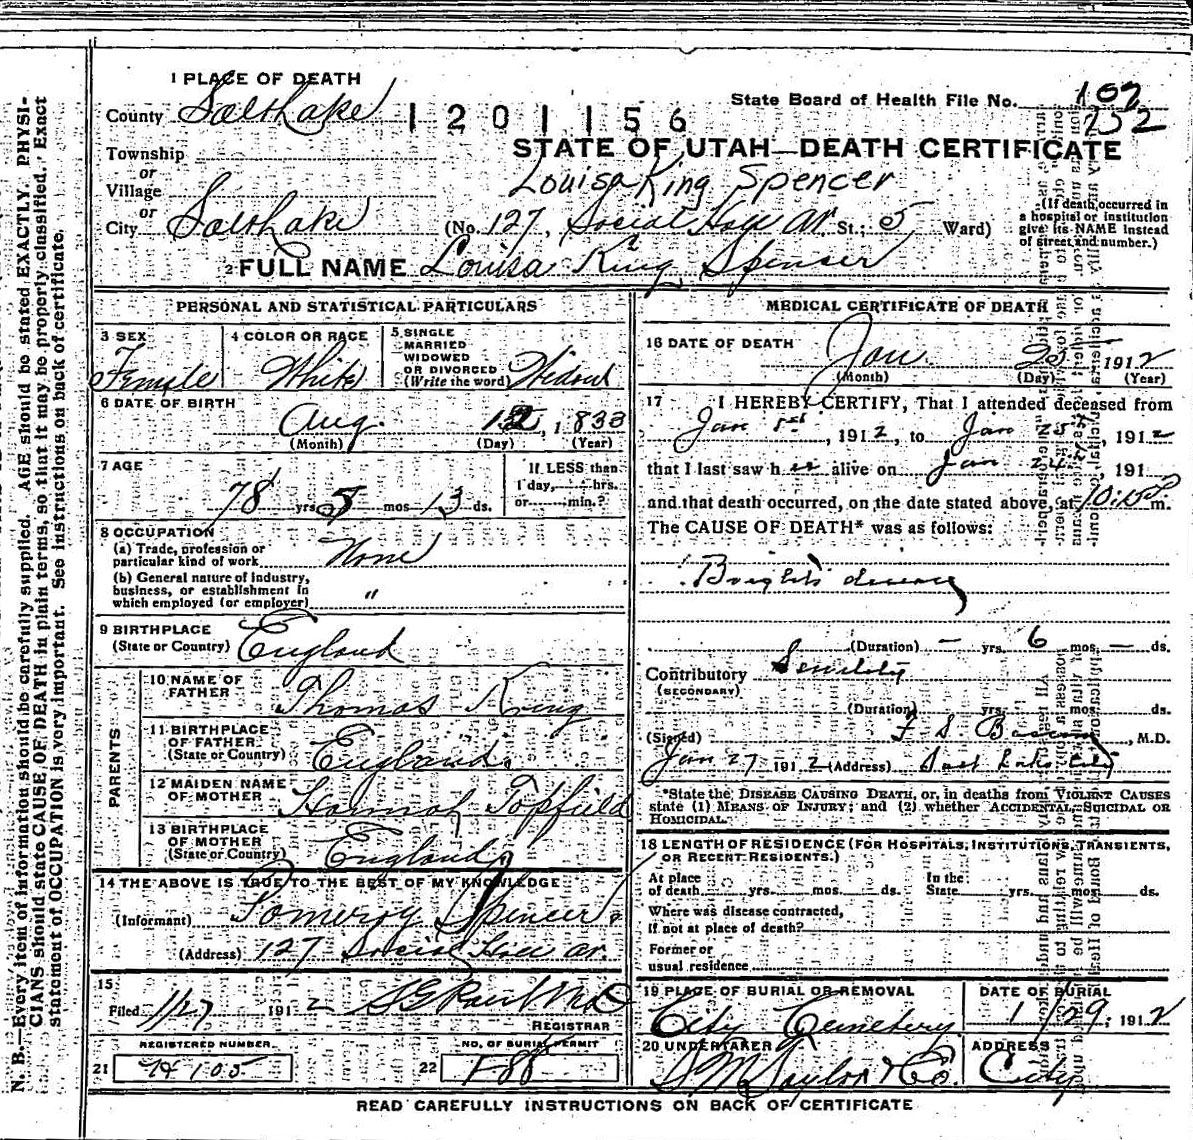 1 PLACE OF DEATH
County Salt Lake 1201156
State Board of Health File No. 102
252
Township
or
Village
or
City Salt Lake
STATE OF UTAH—DEATH CERTIFICATE
Louisa King Spencer
(No. 127, Social Hall av St.; 5 Ward)
(If death occurred in
a hospital or institution
give its NAME instead
of street and number.)
2 FULL NAME Louisa King Spenser
PERSONAL AND STATISTICAL PARTICULARS
3 SEX
Female
4 COLOR OR RACE
White
5 SINGLE
MARRIED
WIDOWED
OR DIVORCED
(Write the word) Widow
6 DATE OF BIRTH
Aug. 12, 1833
(Month) (Day) (Year)
7 AGE
78 yrs 5 mos 13 ds.
If LESS than
1 day, hrs.
or min.?
8 OCCUPATION
(a) Trade, profession or
particular kind of work None
(b) General nature of industry,
business, or establishment in
which employed (or employer) "
9 BIRTHPLACE
(State or Country) England
PARENTS
10 NAME OF
FATHER Thomas King
11 BIRTHPLACE
OF FATHER
(State or Country) England.
12 MAIDEN NAME
OF MOTHER Hannah Topfield
13 BIRTHPLACE
OF MOTHER
(State or Country) England
14 THE ABOVE IS TRUE TO THE BEST OF MY KNOWLEDGE
(Informant) Pomeroy Spencer.
(Address) 127 Social Hall av.
15
Filed 1/27 1912
REGISTRAR
REGISTERED NUMBER
21 H 105
NO. OF BURIAL PERMIT
22 F-88
MEDICAL CERTIFICATE OF DEATH
16 DATE OF DEATH
Jan. 25 1912
(Month) (Day) (Year)
17 I HEREBY CERTIFY, That I attended deceased from
Jan 1st, 1912, to Jan 25th, 1912
that I last saw her alive on Jan 24th, 191
and that death occurred, on the date stated above, at m.
The CAUSE OF DEATH* was as follows:
Bright's disease
(Duration) — yrs. 6 mos. — ds.
Contributory Senility
(SECONDARY)
(Duration) yrs. mos. ds.
(Signed) F. S. , M.D.
Jan 27 1912 (Address) Salt Lake City
*State the DISEASE CAUSING DEATH, or, in deaths from VIOLENT CAUSES
state (1) MEANS OF INJURY; and (2) whether ACCIDENTAL, SUICIDAL OR
HOMICIDAL.
18 LENGTH OF RESIDENCE (FOR HOSPITALS, INSTITUTIONS, TRANSIENTS,
OR RECENT RESIDENTS.)
At place
of death yrs. mos. ds.
In the
State yrs. mos. ds.
Where was disease contracted,
if not at place of death?
Former or
usual residence
19 PLACE OF BURIAL OR REMOVAL
City Cemetery
DATE OF BURIAL
1/29, 1912
20 UNDERTAKER
S M Taylor & Co.
ADDRESS
City
READ CAREFULLY INSTRUCTIONS ON BACK OF CERTIFICATE
N. B.—Every item of information should be carefully supplied. AGE should be stated EXACTLY. PHYSI-
CIANS should state CAUSE OF DEATH in plain terms, so that it may be properly classified. Exact
statement of OCCUPATION is very important. See instructions on back of certificate.